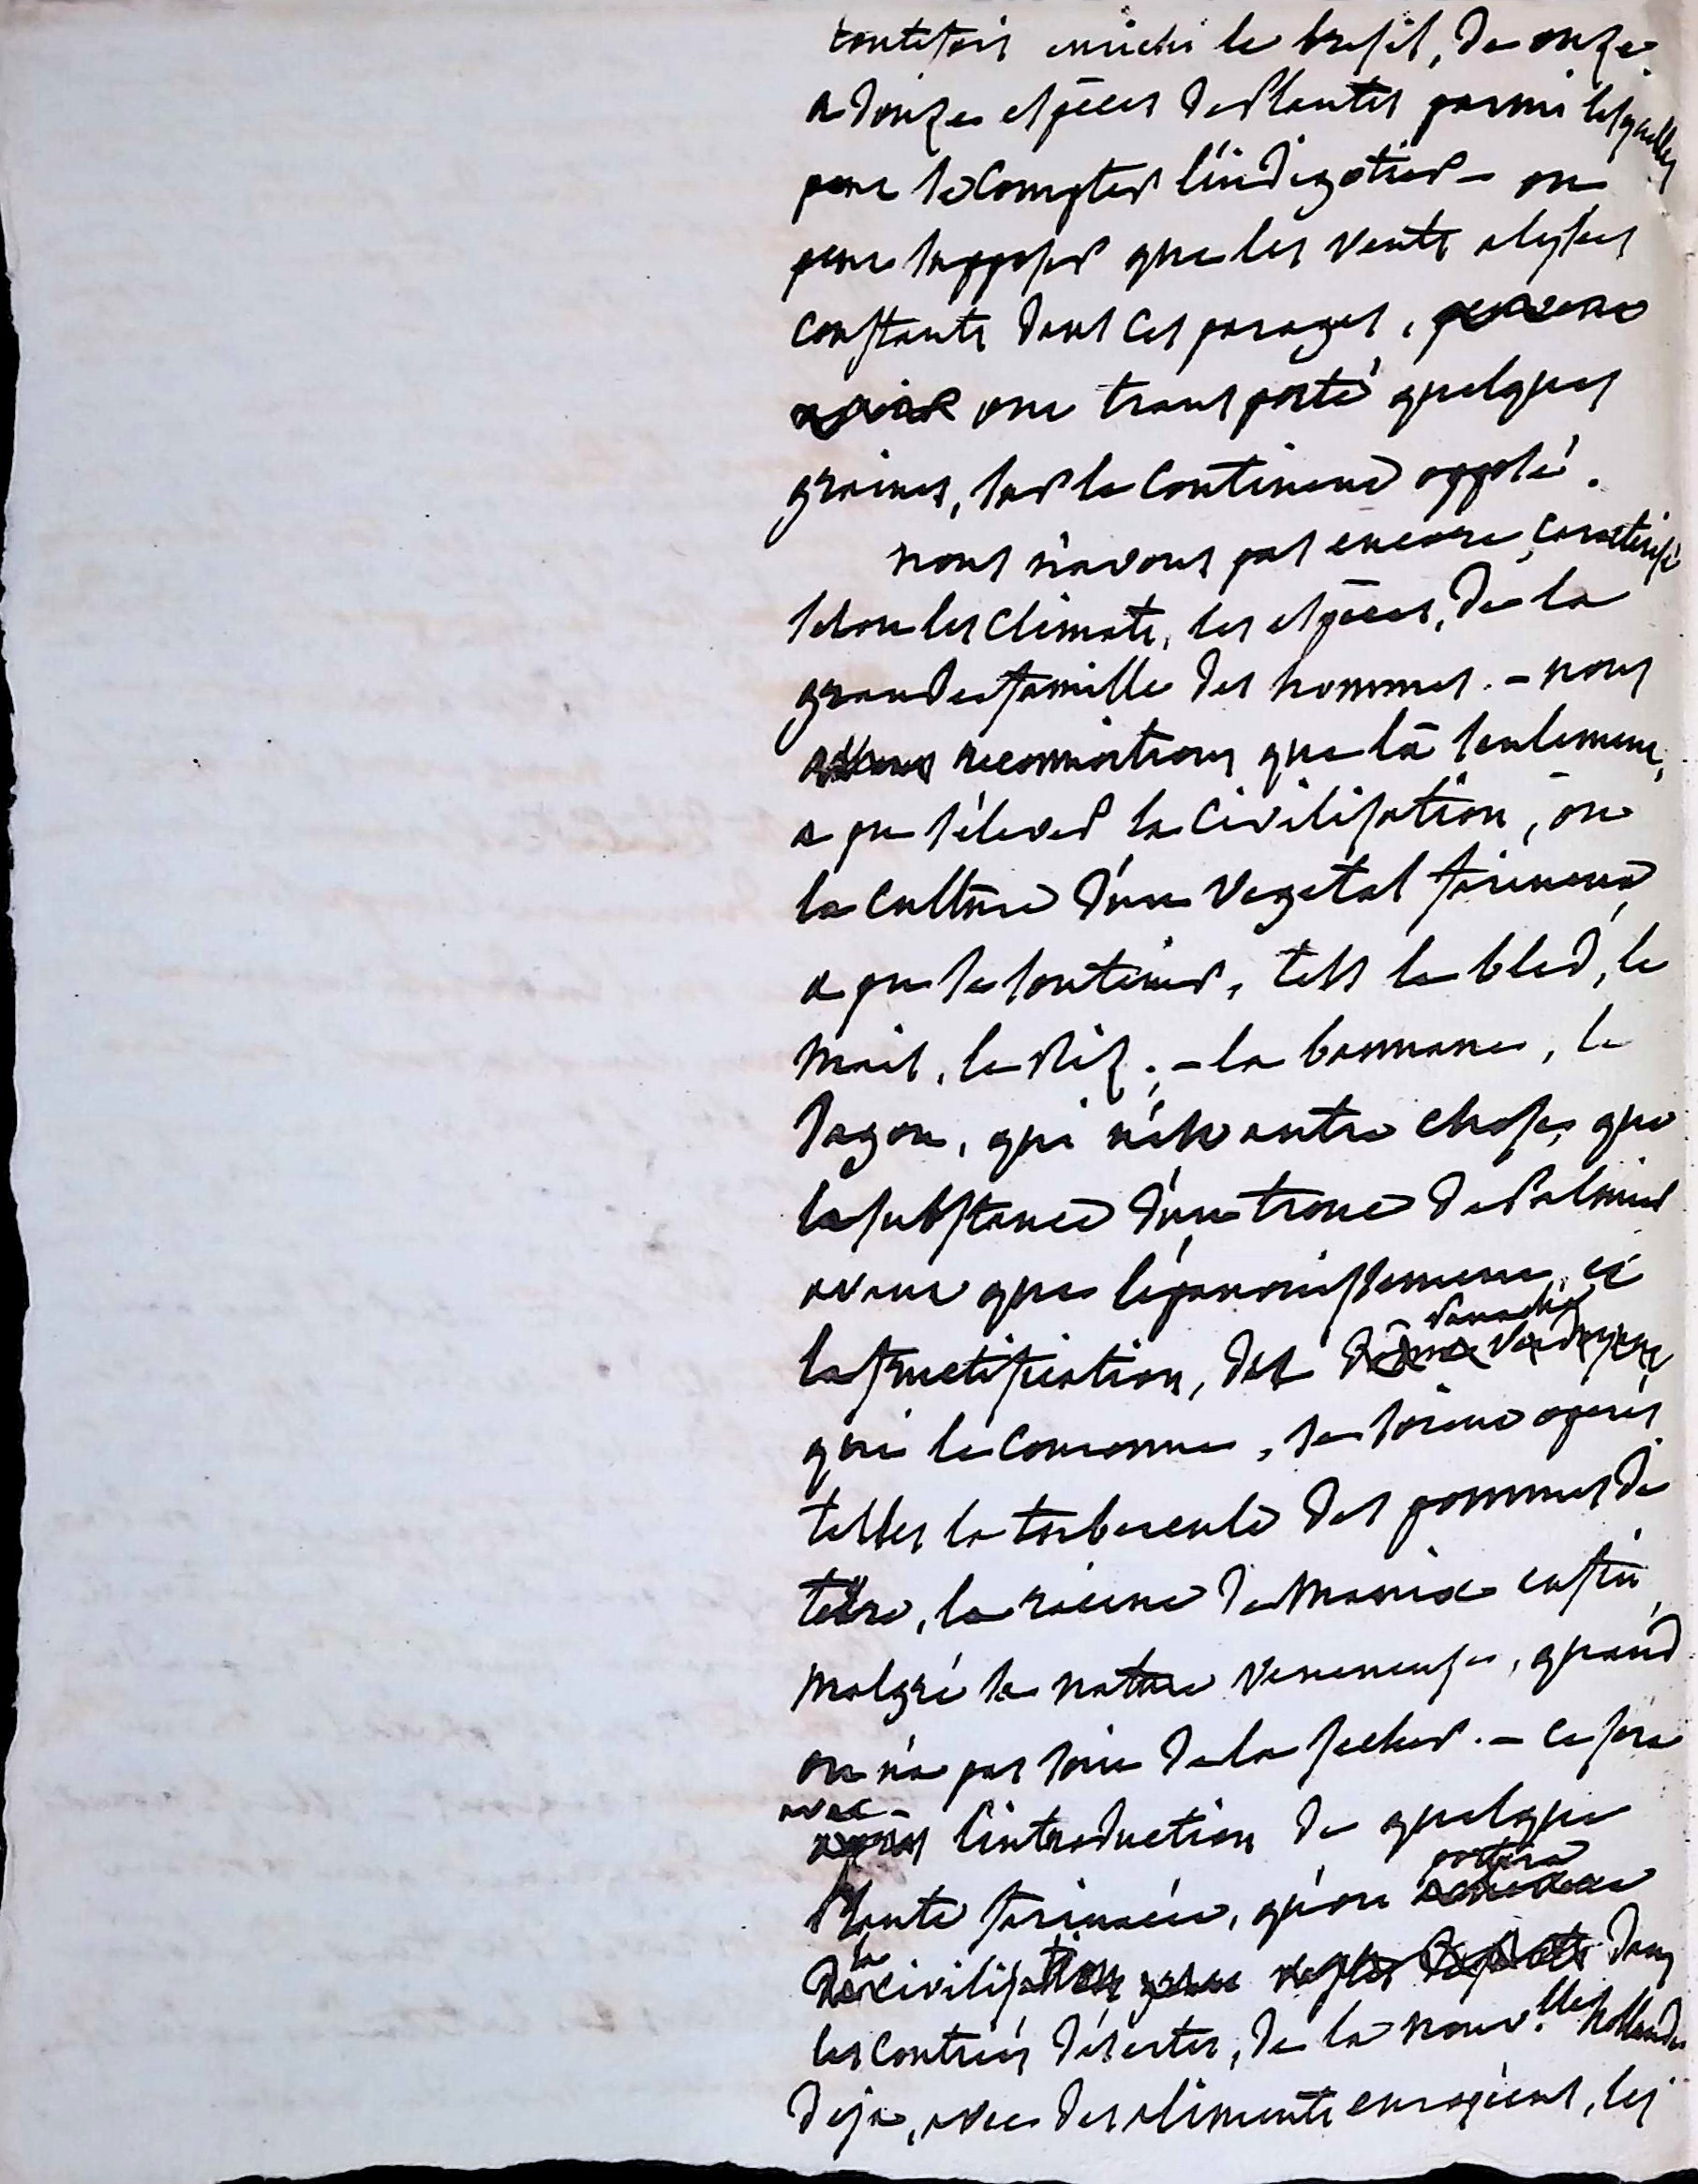 toutefois enrichi le bresil, de onze
a douze espèces de Plantes parmi lesquelles
peut se Compter l'indigotier - on
peut supposer que les vents alysees
constants dans ces parages,
ont transporté quelques
graines, sur le Continent opposé.
nous n'avons pas encore caractérisé
selon les climats, les espèces, de la
grande famille des hommes. - nous
reconnoitrons que là seulement,
a pu s'élever la Civilisation, ou
la Culture d'un Vegetal farineux
a pu se soutenir, tels le bled, le
mais, le Riz ; - la bannane, le
Sagou, qui n'est autre chose, que
la substance d'un tronc de Palmier
avant que l'épanouissement, et
la fructification, des
qui le Couronne, se soient opérés
telles la tuberculé des pommes de
terre, la racine de Manioc enfin,
malgré sa nature veneneuse, quand
on n'a pas soin de la secher. - ce sera
avec - l'introduction de quelque
Plante farinacée, qu'on portera
la civilisation dans
les contrées désertes, de la nouv.lle hollande
Deja, avec des aliments , les